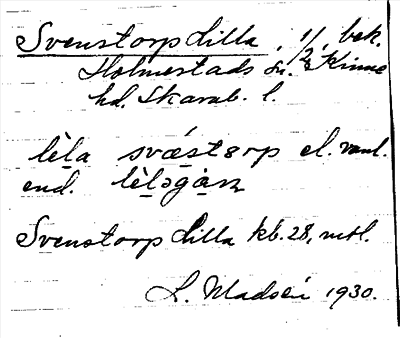 Svenstorp Lilla, 1/2, bek.
Holmestads sn. Kinne
hd. Skarab. l.
lèla svǽstɵrp el. vanl.
end. lèləgàrn
Svenstorp Lilla kb. 28, mtl.
L. Madsén 1930.